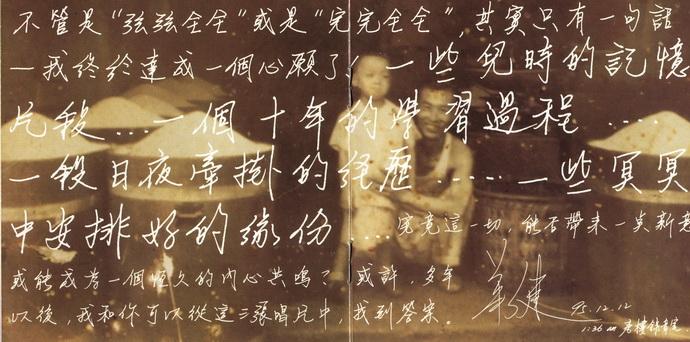 不管是“弦弦全全”或是“完完全全”，其實只有一句話
—我終於達成一個心願了！一些兒時的記憶
片段....一個十年的學習過程.....
一段日夜牽掛的經歷.....一些冥冥
中安排好的緣份....究竟這一切，能否帶來一點新意
或能成為一個恆久的內心共鳴？或許，多年
以後，我和你可以從這三張唱片中，找到答案。
95.12.12
1:36 am 錄音室